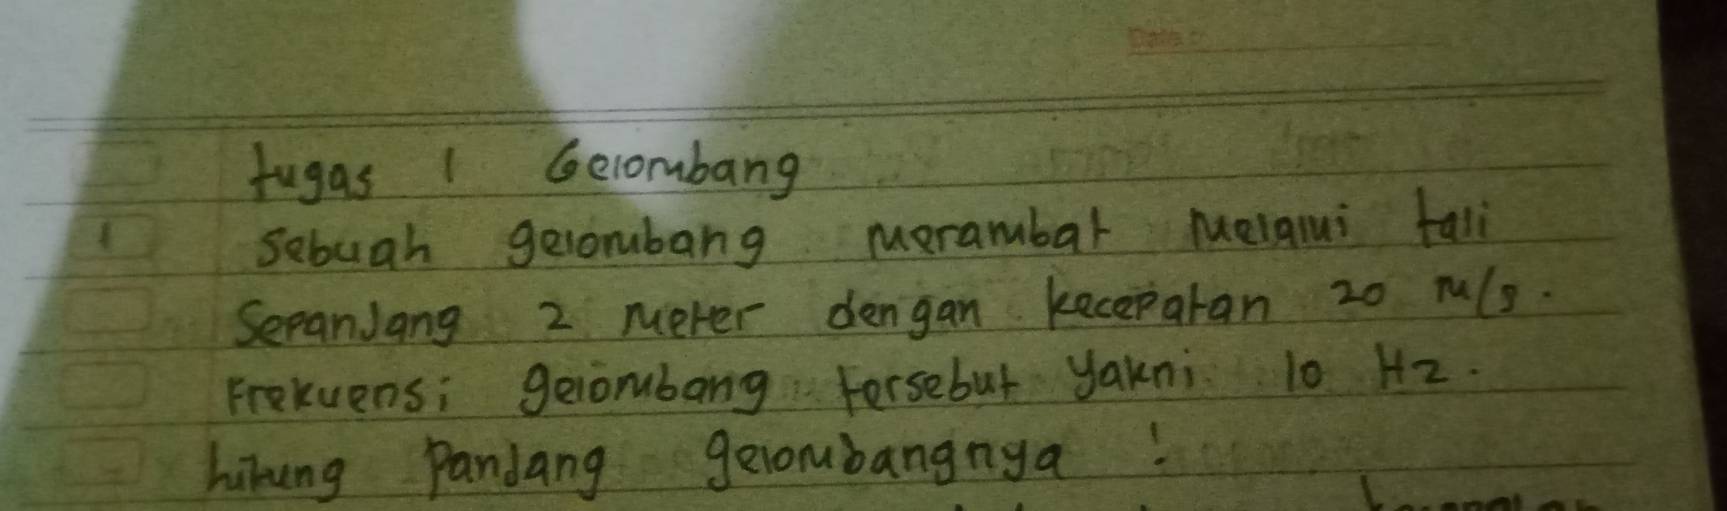 Date :
tugas 1 Gelombang
1 Sebuah gelombang merambat melalui tali
Sepanjang 2 meter dengan kecepatan 20 m/s.
Frekuensi gelombang tersebut yakni 10 Hz.
hitung Panjang gelombangnya !